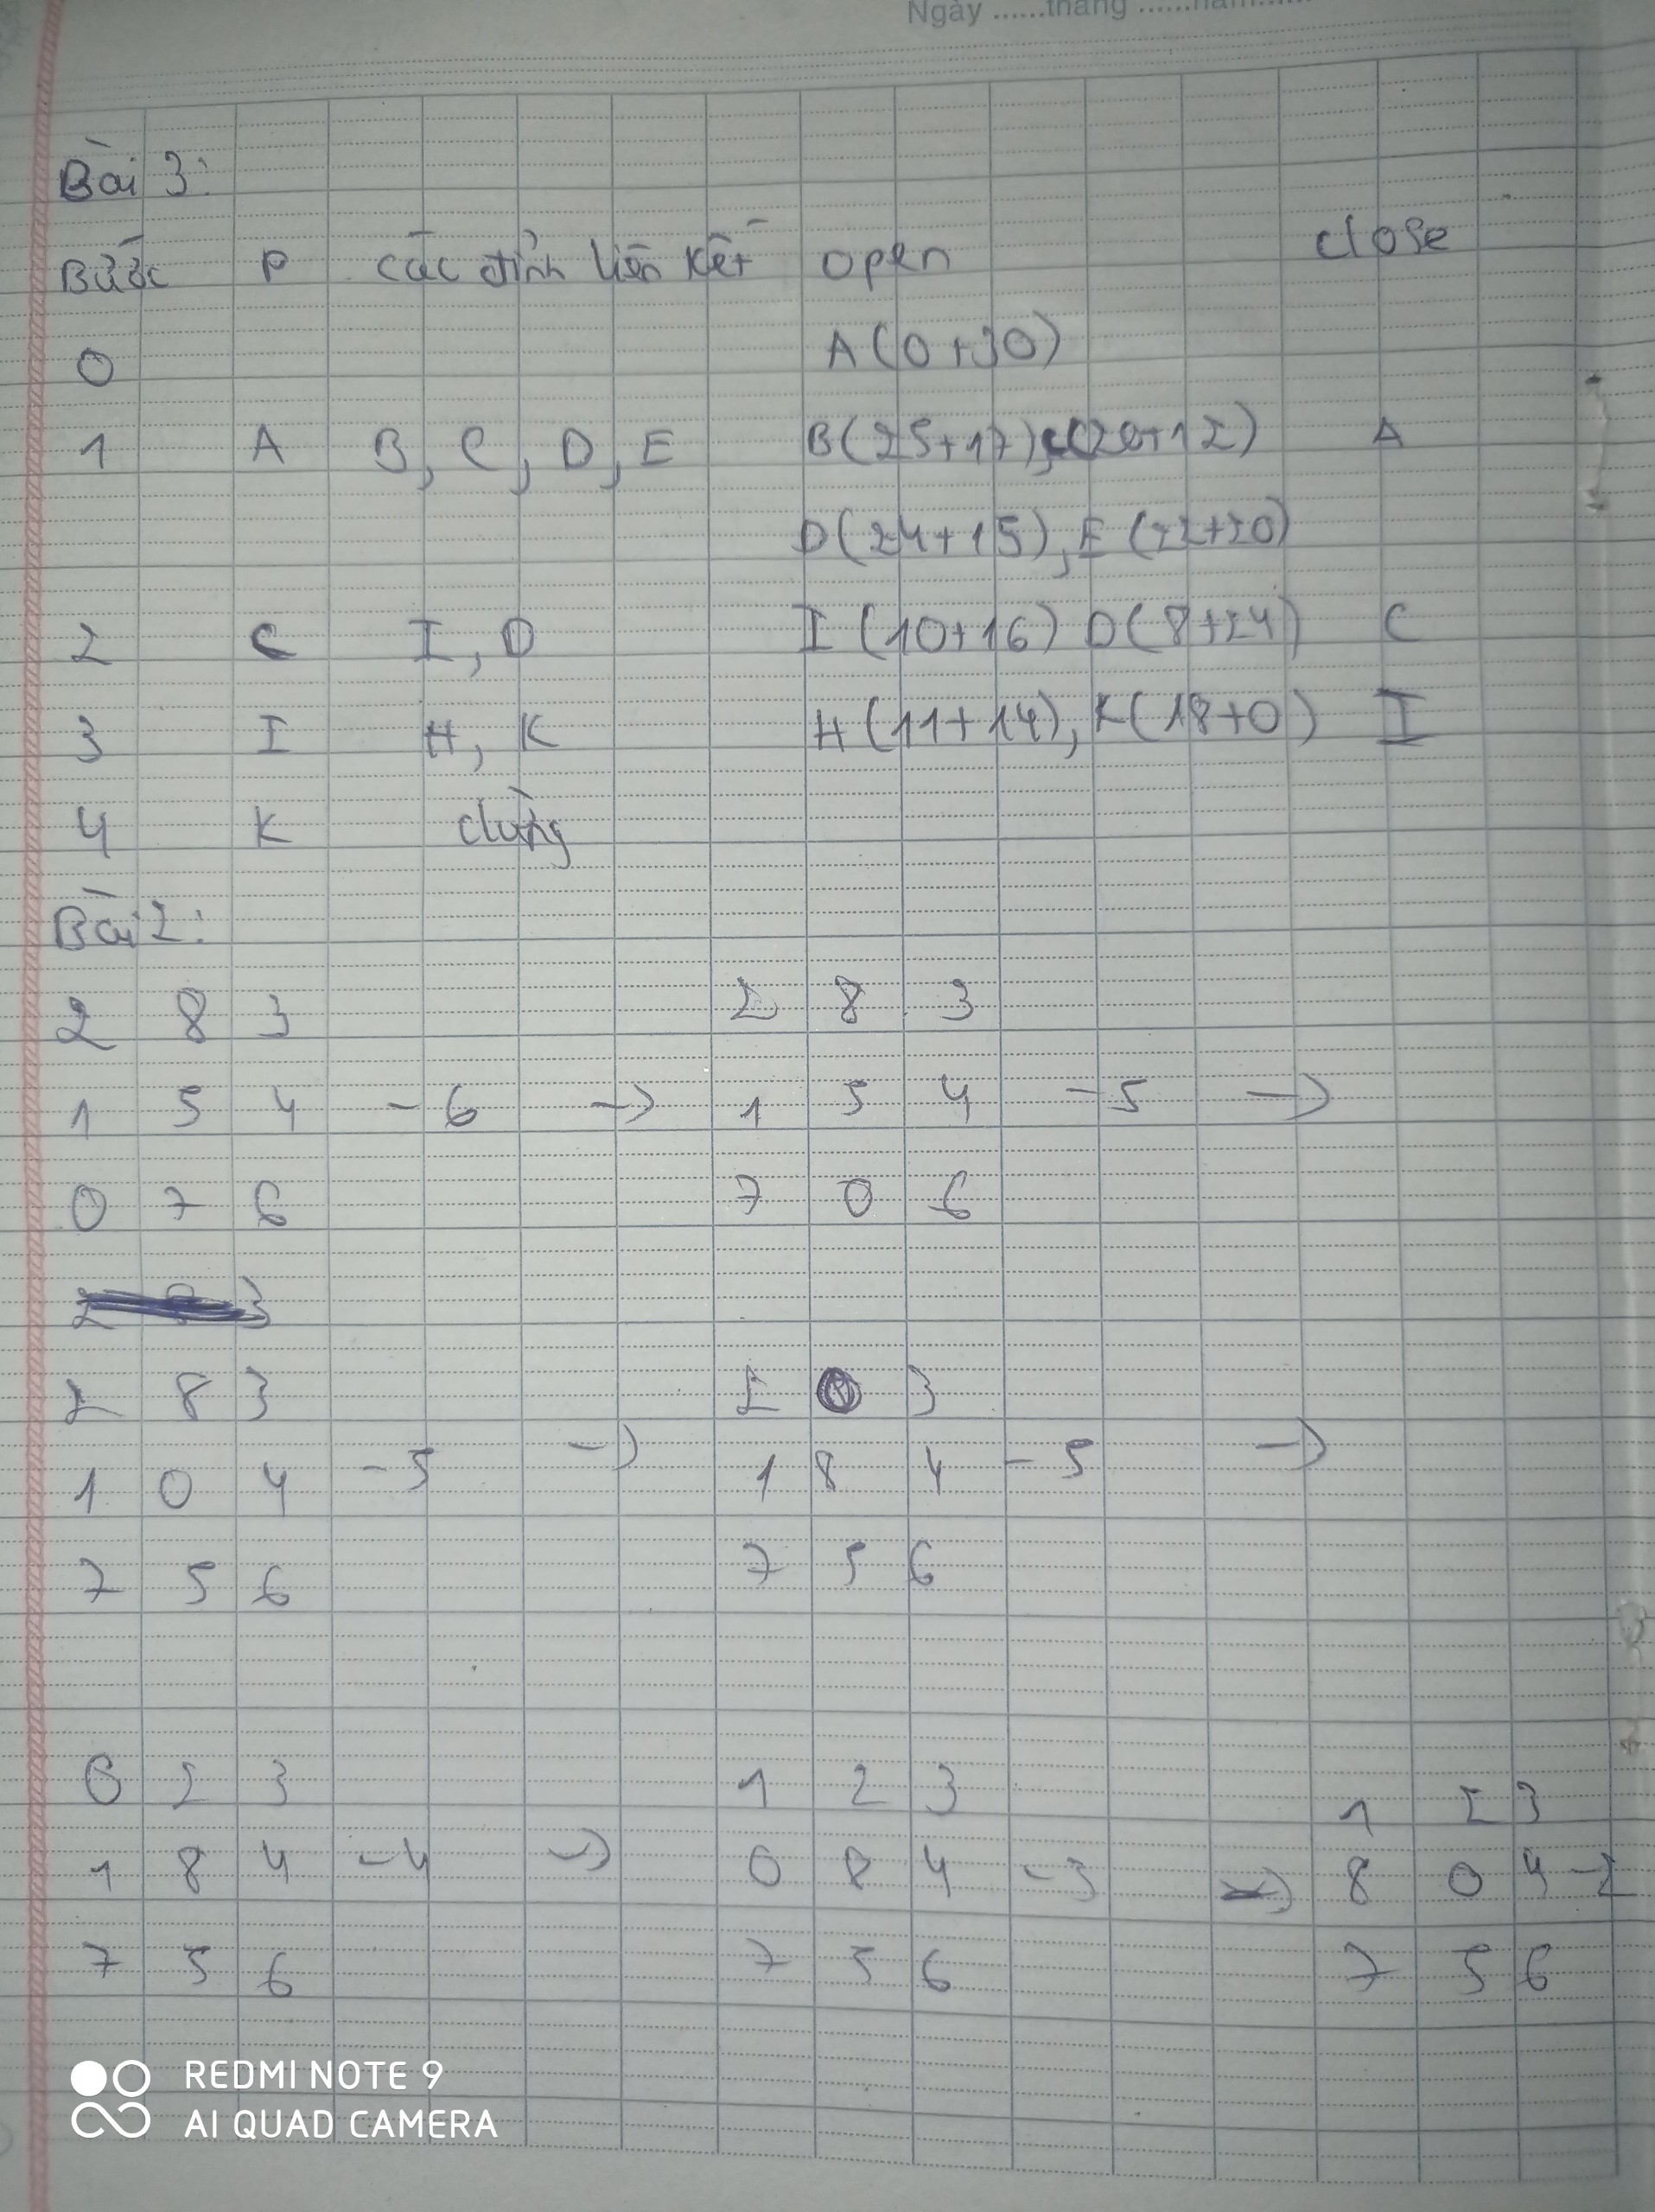 Ngày ......tháng ......năm......
Bài 3:
Bước P các đỉnh liên kết open close
0 A(0+30)
1 A B, C, D, E B(25+17), C(20+12) A
D(24+15), E(22+20)
2 C I, D I(10+16) D(8+24) C
3 I H, K H(11+14), K(18+0) I
4 K dừng
Bài 2:
2 8 3 2 8 3
1 5 4 - 6 -> 1 5 4 - 5 ->
0 7 6 7 0 6
2 8 3 2 0 3
1 0 4 - 5 -> 1 8 4 - 5 ->
7 5 6 7 5 6
0 2 3 1 2 3 1 2 3
1 8 4 - 4 -> 0 8 4 - 3 -> 8 0 4 - 2
7 5 6 7 5 6 7 5 6
REDMI NOTE 9
AI QUAD CAMERA